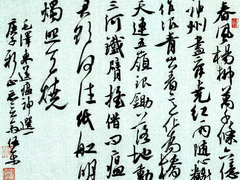 春風楊柳萬千條六億
神州盡舜堯紅雨隨心翻
作浪青山着意化為橋
天連五嶺銀鋤落地動
三河鐵臂搖借問瘟
君欲何往紙船明
燭照天燒
毛澤東送瘟神選
庚子